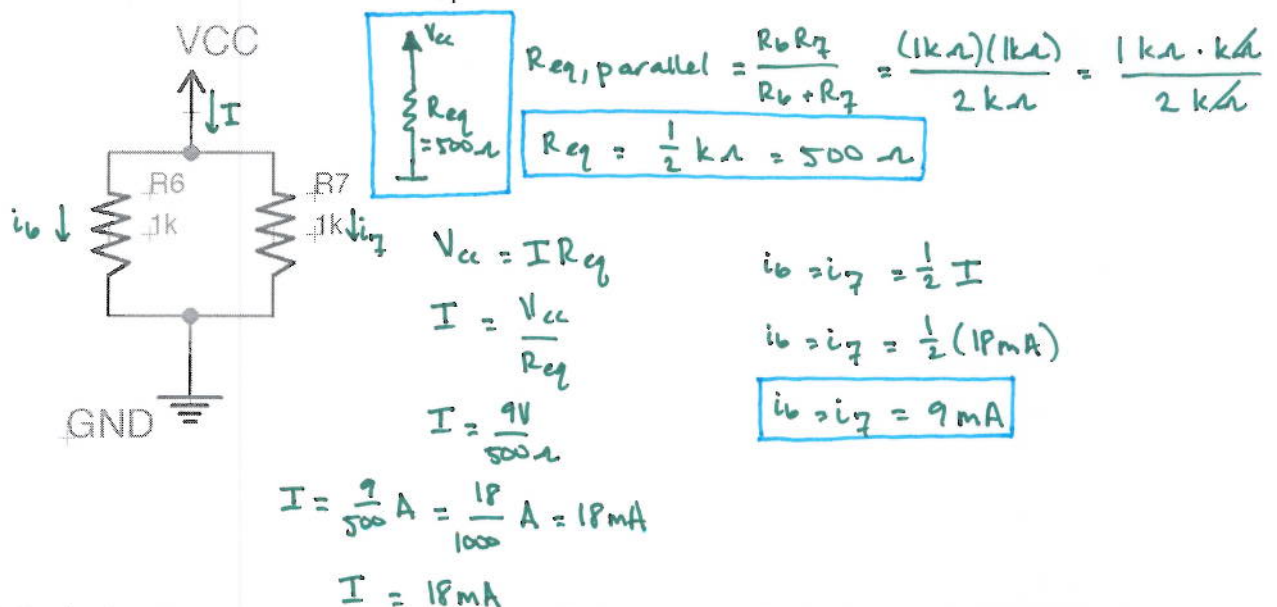 VCC
↓I
R6
1k
i6 ↓
R7
1k ↓i7
GND
Vcc
Req
=500Ω
Req, parallel = R6R7 / R6+R7 = (1kΩ)(1kΩ) / 2kΩ = 1kΩ·kΩ / 2kΩ
Req = 1/2 kΩ = 500Ω
Vcc = IReq
I = Vcc / Req
I = 9V / 500Ω
I = 9/500 A = 18/1000 A = 18mA
I = 18mA
i6 = i7 = 1/2 I
i6 = i7 = 1/2 (18mA)
i6 = i7 = 9mA